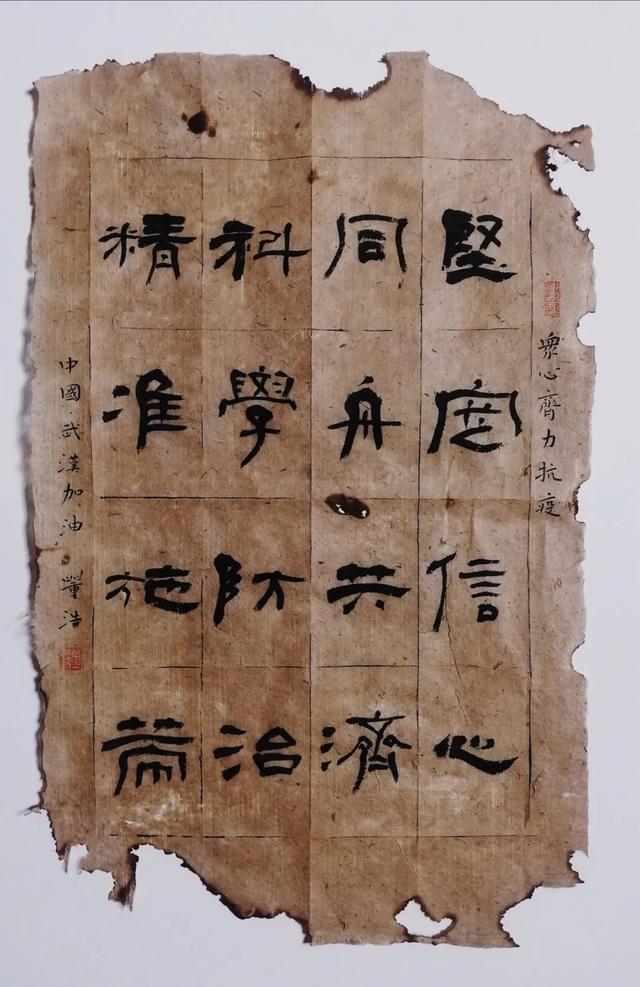 衆心齊力抗疫
堅定信心
同舟共濟
科學防治
精准施策
中國武漢加油 董浩